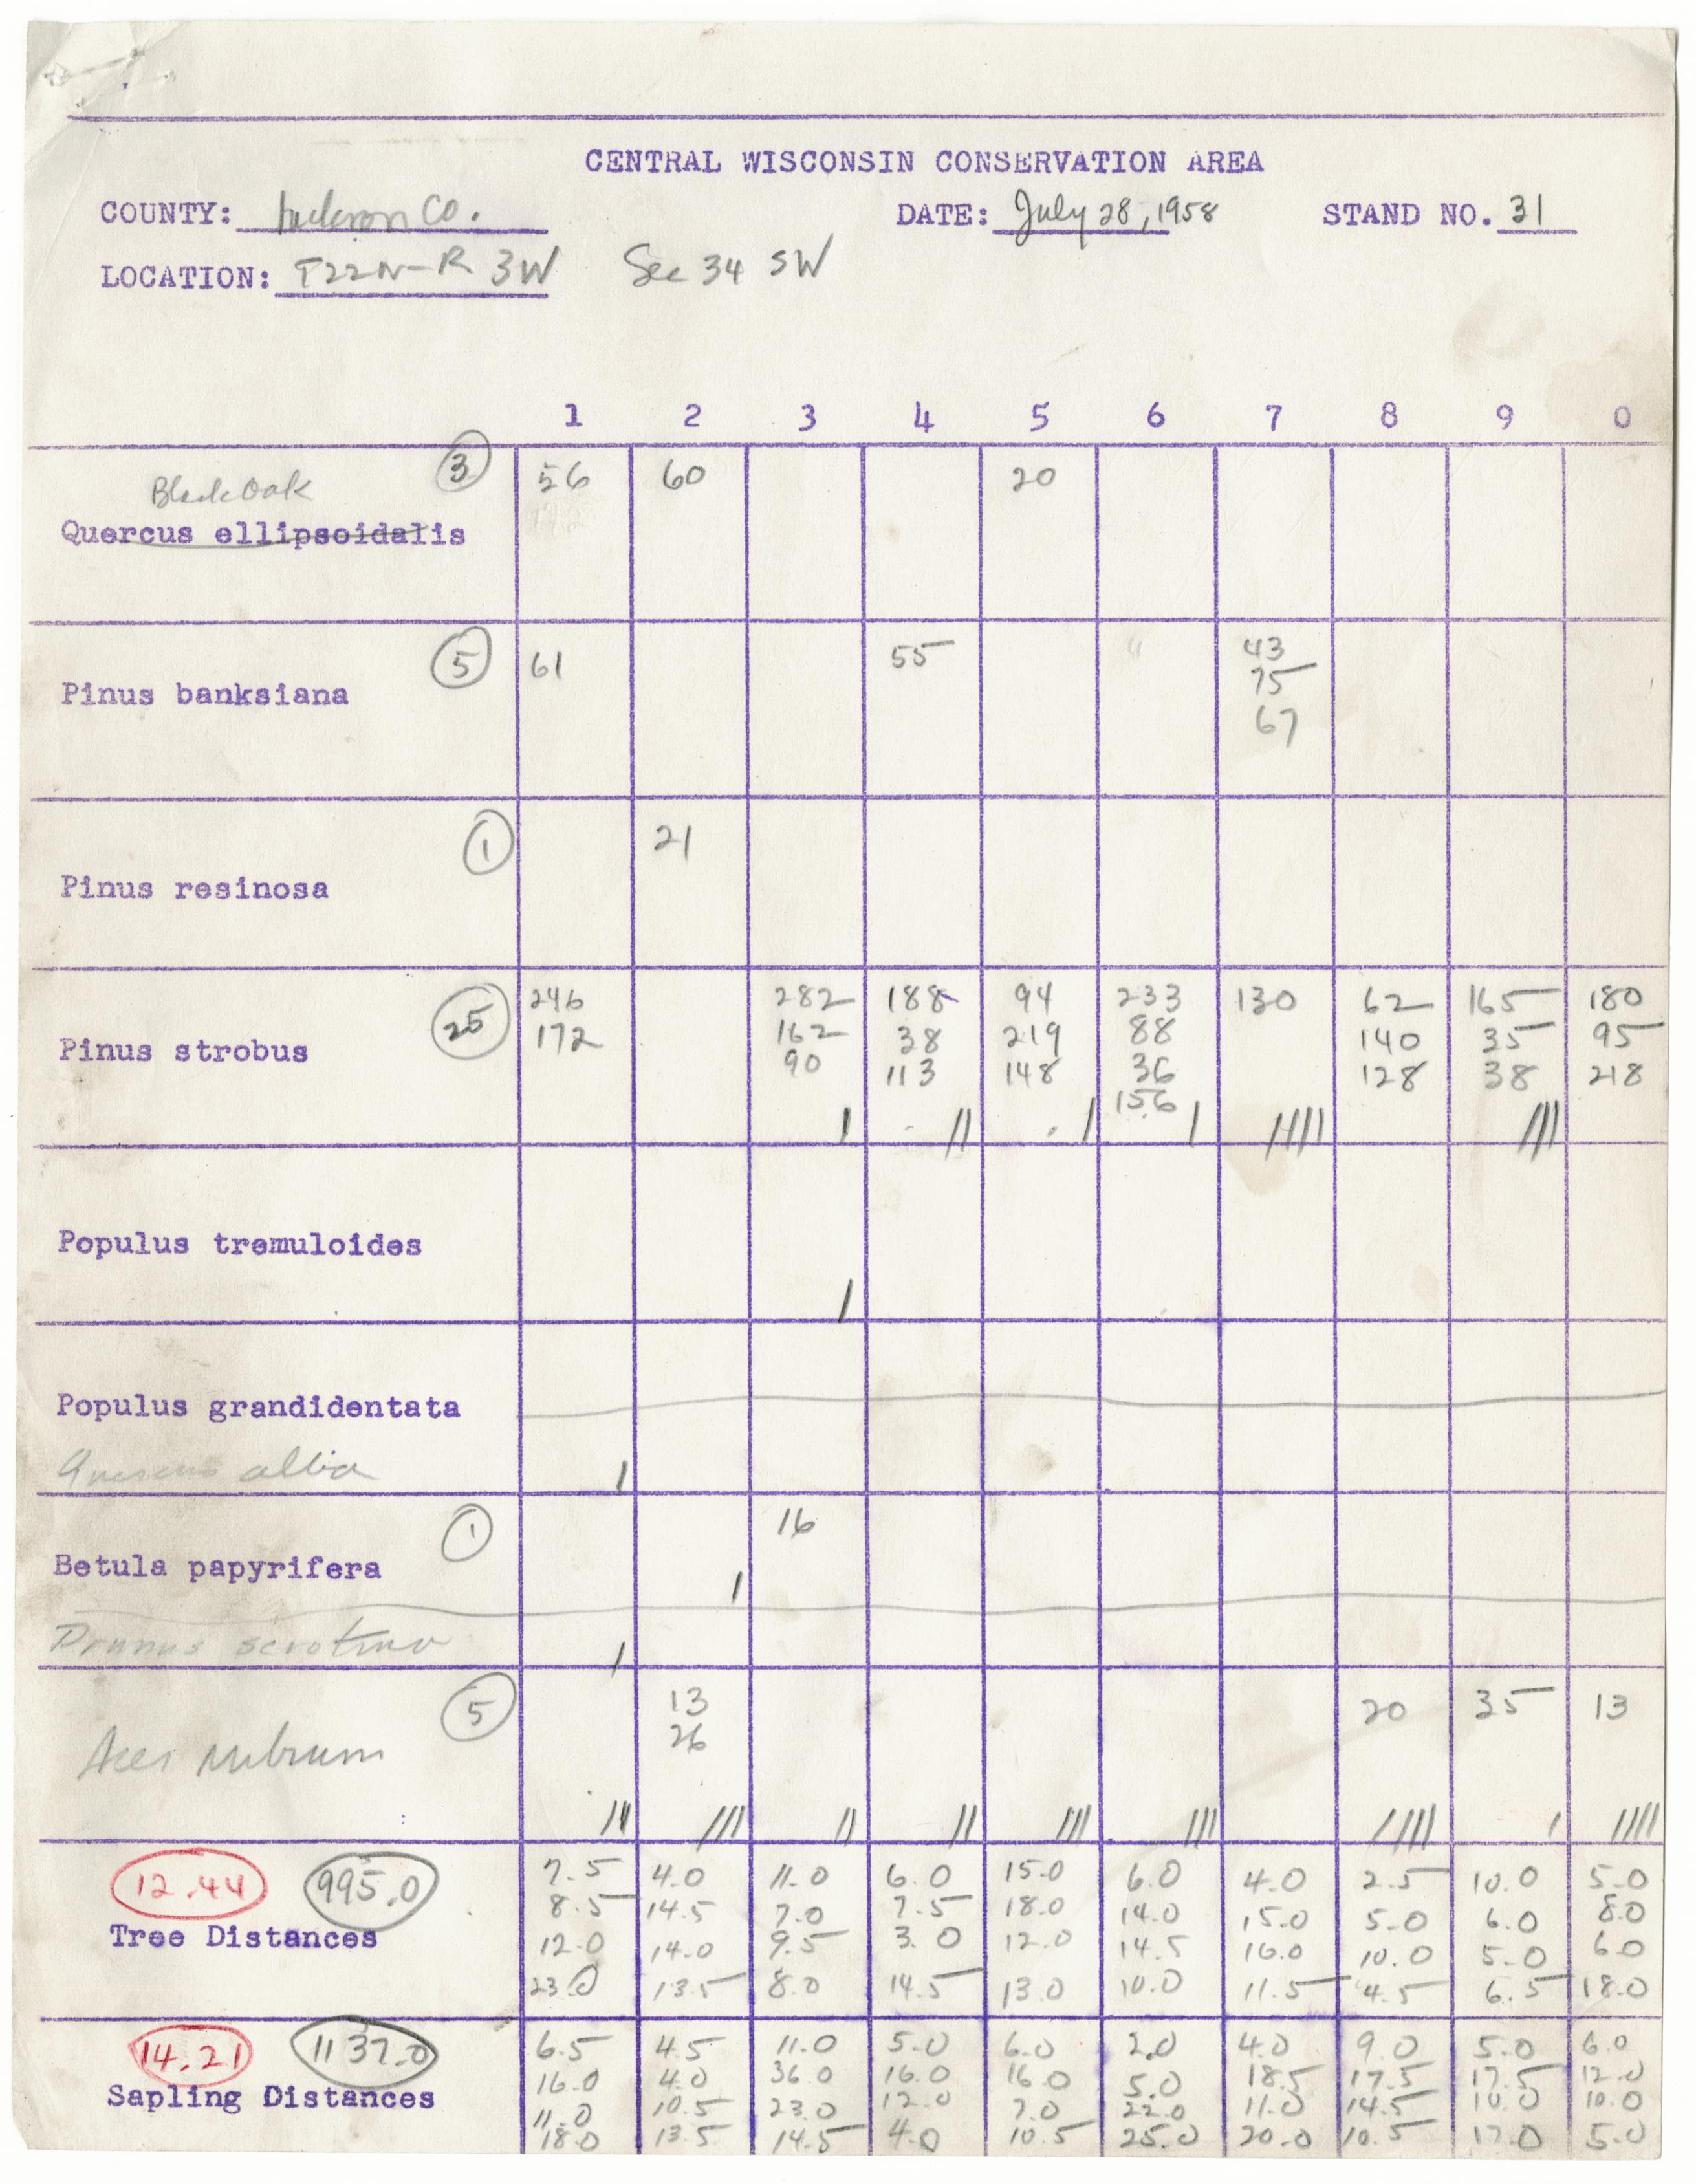 CENTRAL WISCONSIN CONSERVATION AREA
COUNTY: Jackson Co. DATE: July 28, 1958 STAND NO. 31
LOCATION: T22N-R 3W Sec 34 SW
1 2 3 4 5 6 7 8 9 0
Black Oak 3 56 60 20
Quercus ellipsoidalis
5 61 55 43
75
67
Pinus banksiana
1 21
Pinus resinosa
246 282 188 94 233 130 62 165 180
25 172 162 38 219 88 140 35 95
Pinus strobus 90 113 148 36 128 38 218
156
Populus tremuloides
Populus grandidentata
Quercus alba
1 16
Betula papyrifera
Prunus serotina
5 13 20 35 13
26
Acer rubrum
12.44 995.0 7.5 4.0 11.0 6.0 15.0 6.0 4.0 2.5 10.0 5.0
8.5 14.5 7.0 7.5 18.0 14.0 15.0 5.0 6.0 8.0
Tree Distances 12.0 14.0 9.5 3.0 12.0 14.5 16.0 10.0 5.0 6.0
23.0 13.5 8.0 14.5 13.0 10.0 11.5 4.5 6.5 18.0
14.21 1137.0 6.5 4.5 11.0 5.0 6.0 2.0 4.0 9.0 5.0 6.0
16.0 4.0 36.0 16.0 16.0 5.0 18.5 17.5 17.5 12.0
Sapling Distances 11.0 10.5 23.0 12.0 7.0 22.0 11.0 14.5 10.0 10.0
18.0 13.5 14.5 4.0 10.5 25.0 20.0 10.5 17.0 5.0